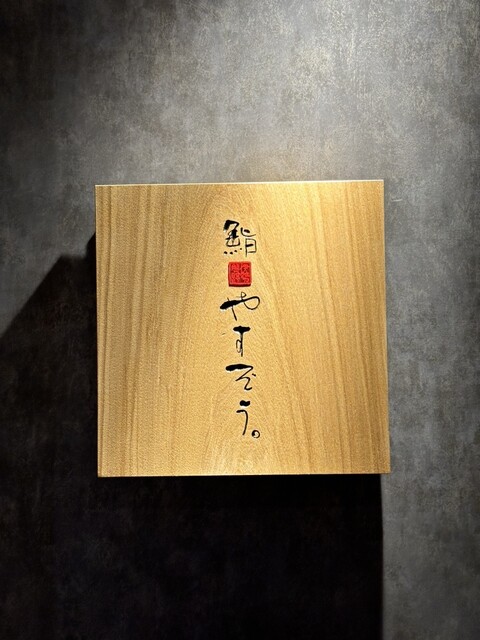 鮨
やすぞう。